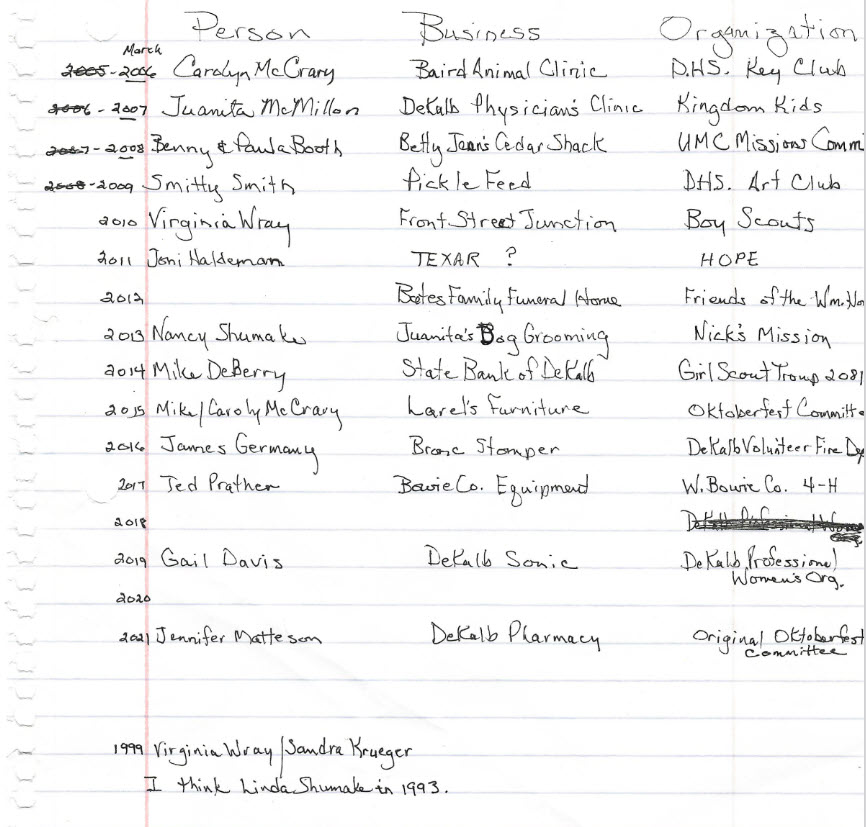 Person Business Organization
March
2005-2006 Carolyn McCrary Baird Animal Clinic D.H.S. Key Club
2006-2007 Juanita McMillon DeKalb Physician's Clinic Kingdom Kids
2007-2008 Benny & Paula Booth Betty Jean's Cedar Shack UMC Missions Comm
2008-2009 Smitty Smith Pickle Feed DHS. Art Club
2010 Virginia Wray Front Street Junction Boy Scouts
2011 Joni Haldeman TEXAR ? HOPE
2012 Bates Family Funeral Home Friends of the Wm.
2013 Nancy Shumake Juanita's Dog Grooming Nick's Mission
2014 Mike DeBerry State Bank of DeKalb Girl Scout Troup 2081
2015 Mike/Caroly McCrary Larel's Furniture Oktoberfest Committe
2016 James Germany Bronc Stomper DeKalb Volunteer Fire
2017 Ted Prather Bowie Co. Equipment W. Bowie Co. 4-H
2018
2019 Gail Davis DeKalb Sonic DeKalb Professional
Women's Org.
2020
2021 Jennifer Matteson DeKalb Pharmacy Original Oktoberfest
Committee
1999 Virginia Wray/Sandra Krueger
I think Linda Shumake in 1993.